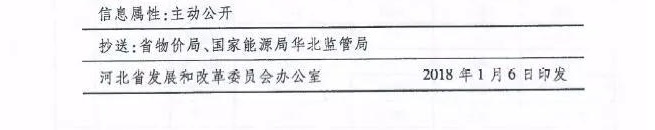 信息属性:主动公开
抄送:省物价局、国家能源局华北监管局
河北省发展和改革委员会办公室 2018年1月6日印发